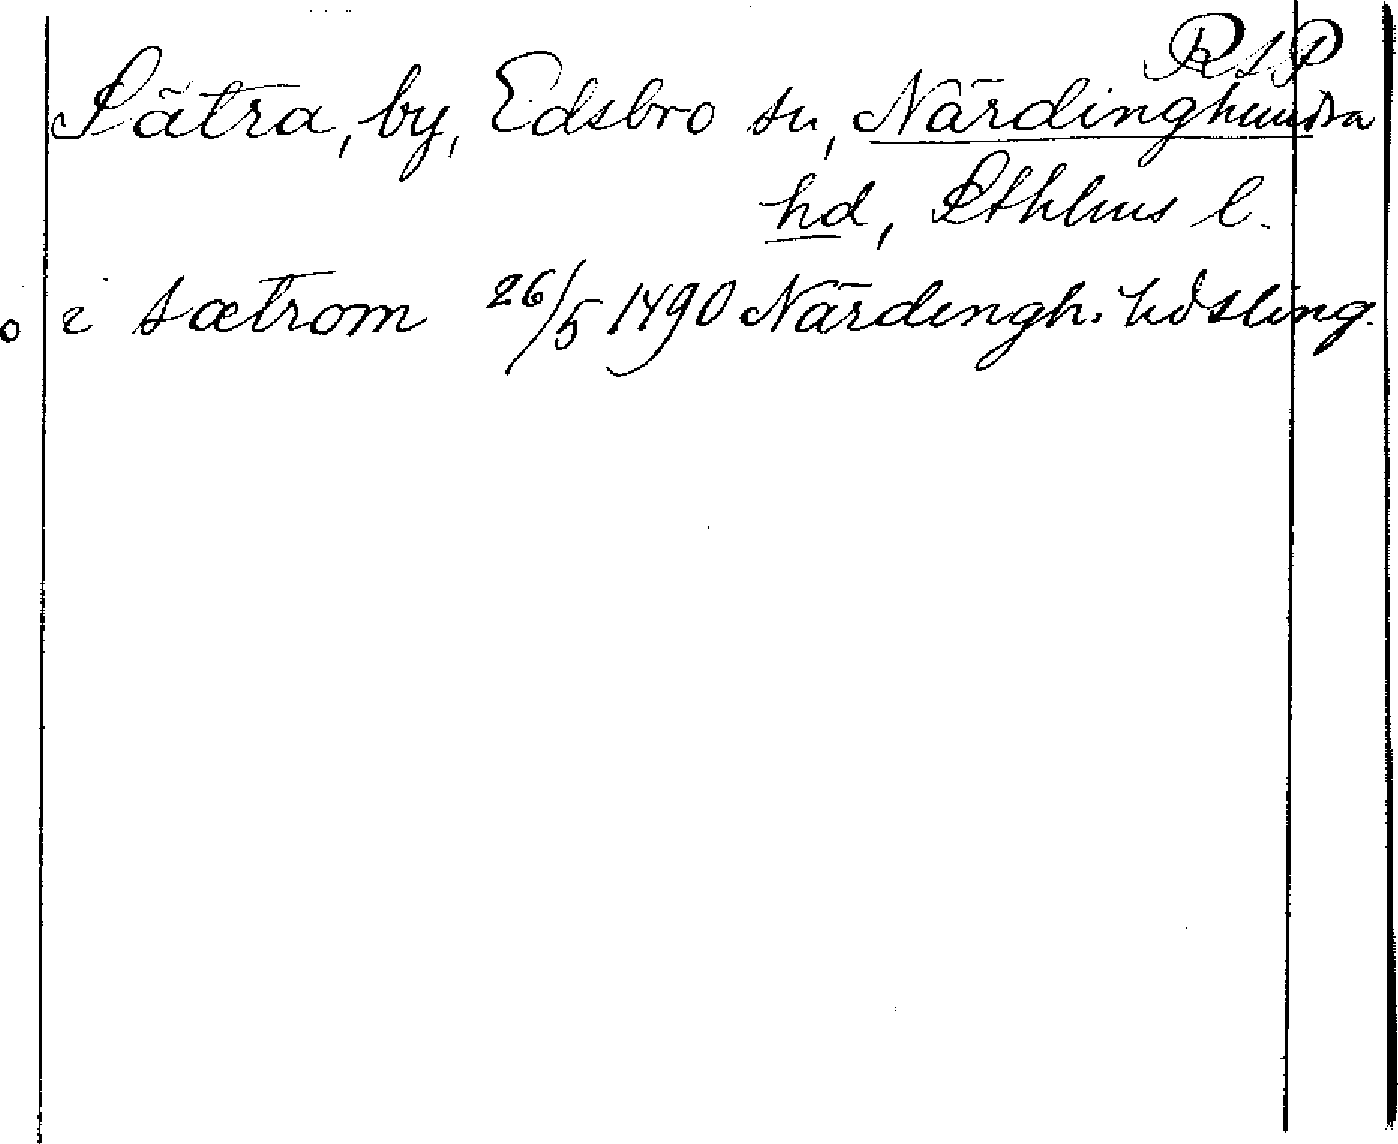 RAP
Sätra, by, Edsbro sn, Närdinghundra
hd, Sthlms l.
o i sætrom 26/5 1490 Närdingh. hds ting.